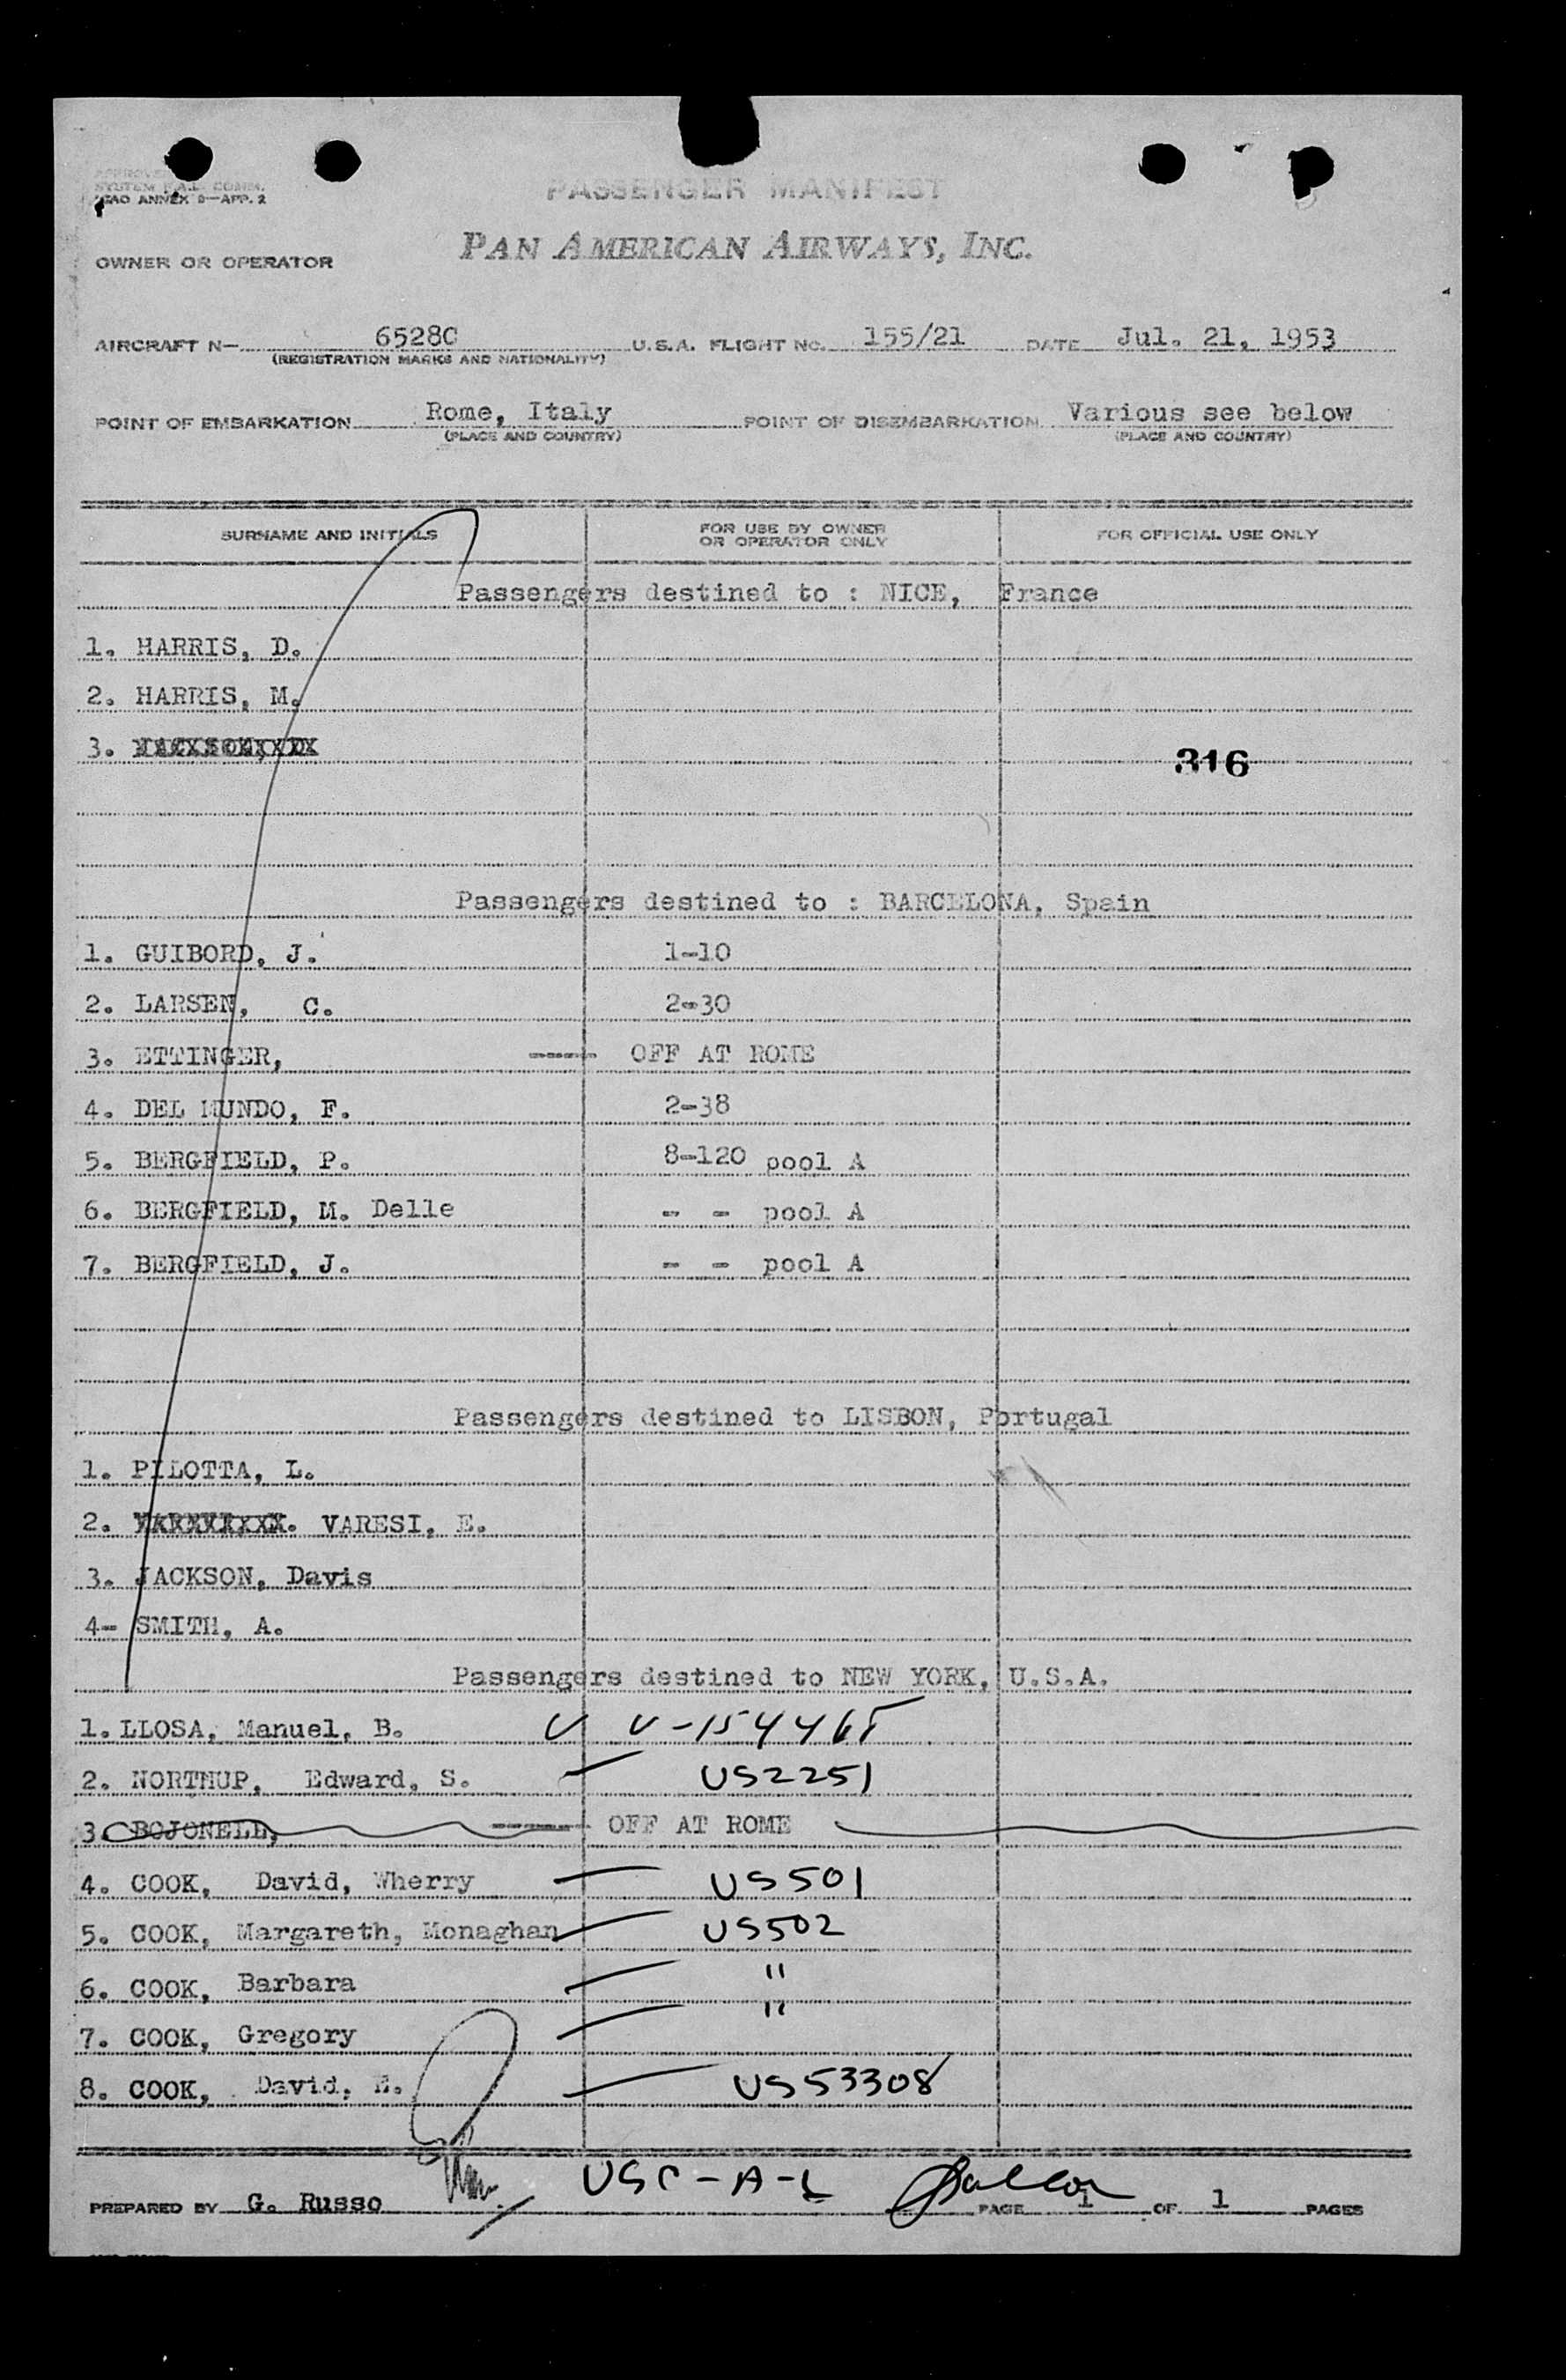 SYSTEM F.A.L. COMM.
ICAO ANNEX 9—APP. 2
PASSENGER MANIFEST
OWNER OR OPERATOR PAN AMERICAN AIRWAYS, INC.
AIRCRAFT N— 6528C U.S.A. FLIGHT NO. 155/21 DATE Jul. 21, 1953
(REGISTRATION MARKS AND NATIONALITY)
POINT OF EMBARKATION Rome, Italy POINT OF DISEMBARKATION Various see below
(PLACE AND COUNTRY) (PLACE AND COUNTRY)
SURNAME AND INITIALS FOR USE BY OWNER OR OPERATOR ONLY FOR OFFICIAL USE ONLY
Passengers destined to : NICE, France
1. HARRIS, D.
2. HARRIS, M.
3.
316
Passengers destined to : BARCELONA, Spain
1. GUIBORD, J. 1-10
2. LARSEN, C. 2-30
3. ETTINGER, ----- OFF AT ROME
4. DEL MUNDO, F. 2-38
5. BERGFIELD, P. 8-120 pool A
6. BERGFIELD, M. Delle - - pool A
7. BERGFIELD, J. - - pool A
Passengers destined to LISBON, Portugal
1. PILOTTA, L.
2. VARESI, E.
3. JACKSON, Davis
4- SMITH, A.
Passengers destined to NEW YORK, U.S.A.
1. LLOSA, Manuel, B. V-154465
2. NORTHUP, Edward, S. US2251
3. BOJONELL, ------ OFF AT ROME
4. COOK, David, Wherry US501
5. COOK, Margareth, Monaghan US502
6. COOK, Barbara "
7. COOK, Gregory "
8. COOK, David, E. US53308
USC-A-L
PREPARED BY G. Russo PAGE 1 OF 1 PAGES